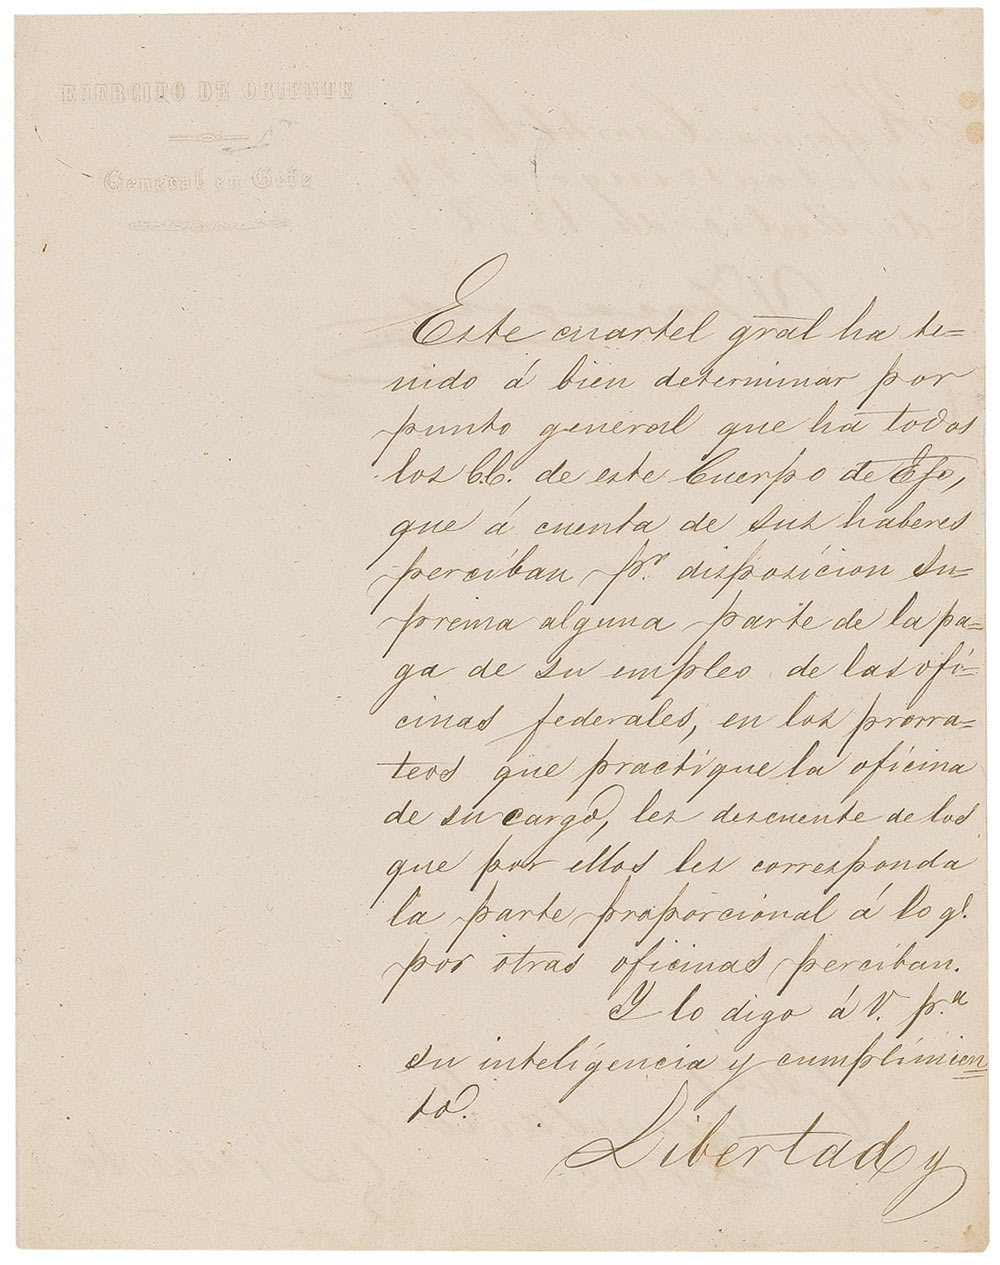 EJERCITO DE ORIENTE
General en Gefe
Este cuartel gral ha te=
nido á bien determinar por
punto general que há todos
los CC. de este Cuerpo de Ejo,
que á cuenta de sus haberes
perciban pr. disposicion su=
prema alguna parte de la pa=
ga de su empleo de las ofi=
cinas federales, en los prorra=
teos que practique la oficina
de su cargo, les descuente de los
que por ellos les corresponda
la parte proporcional á lo q.
por otras oficinas perciban.
Y lo digo á V. pa.
su inteligencia y cumplimien=
to.
Libertad y